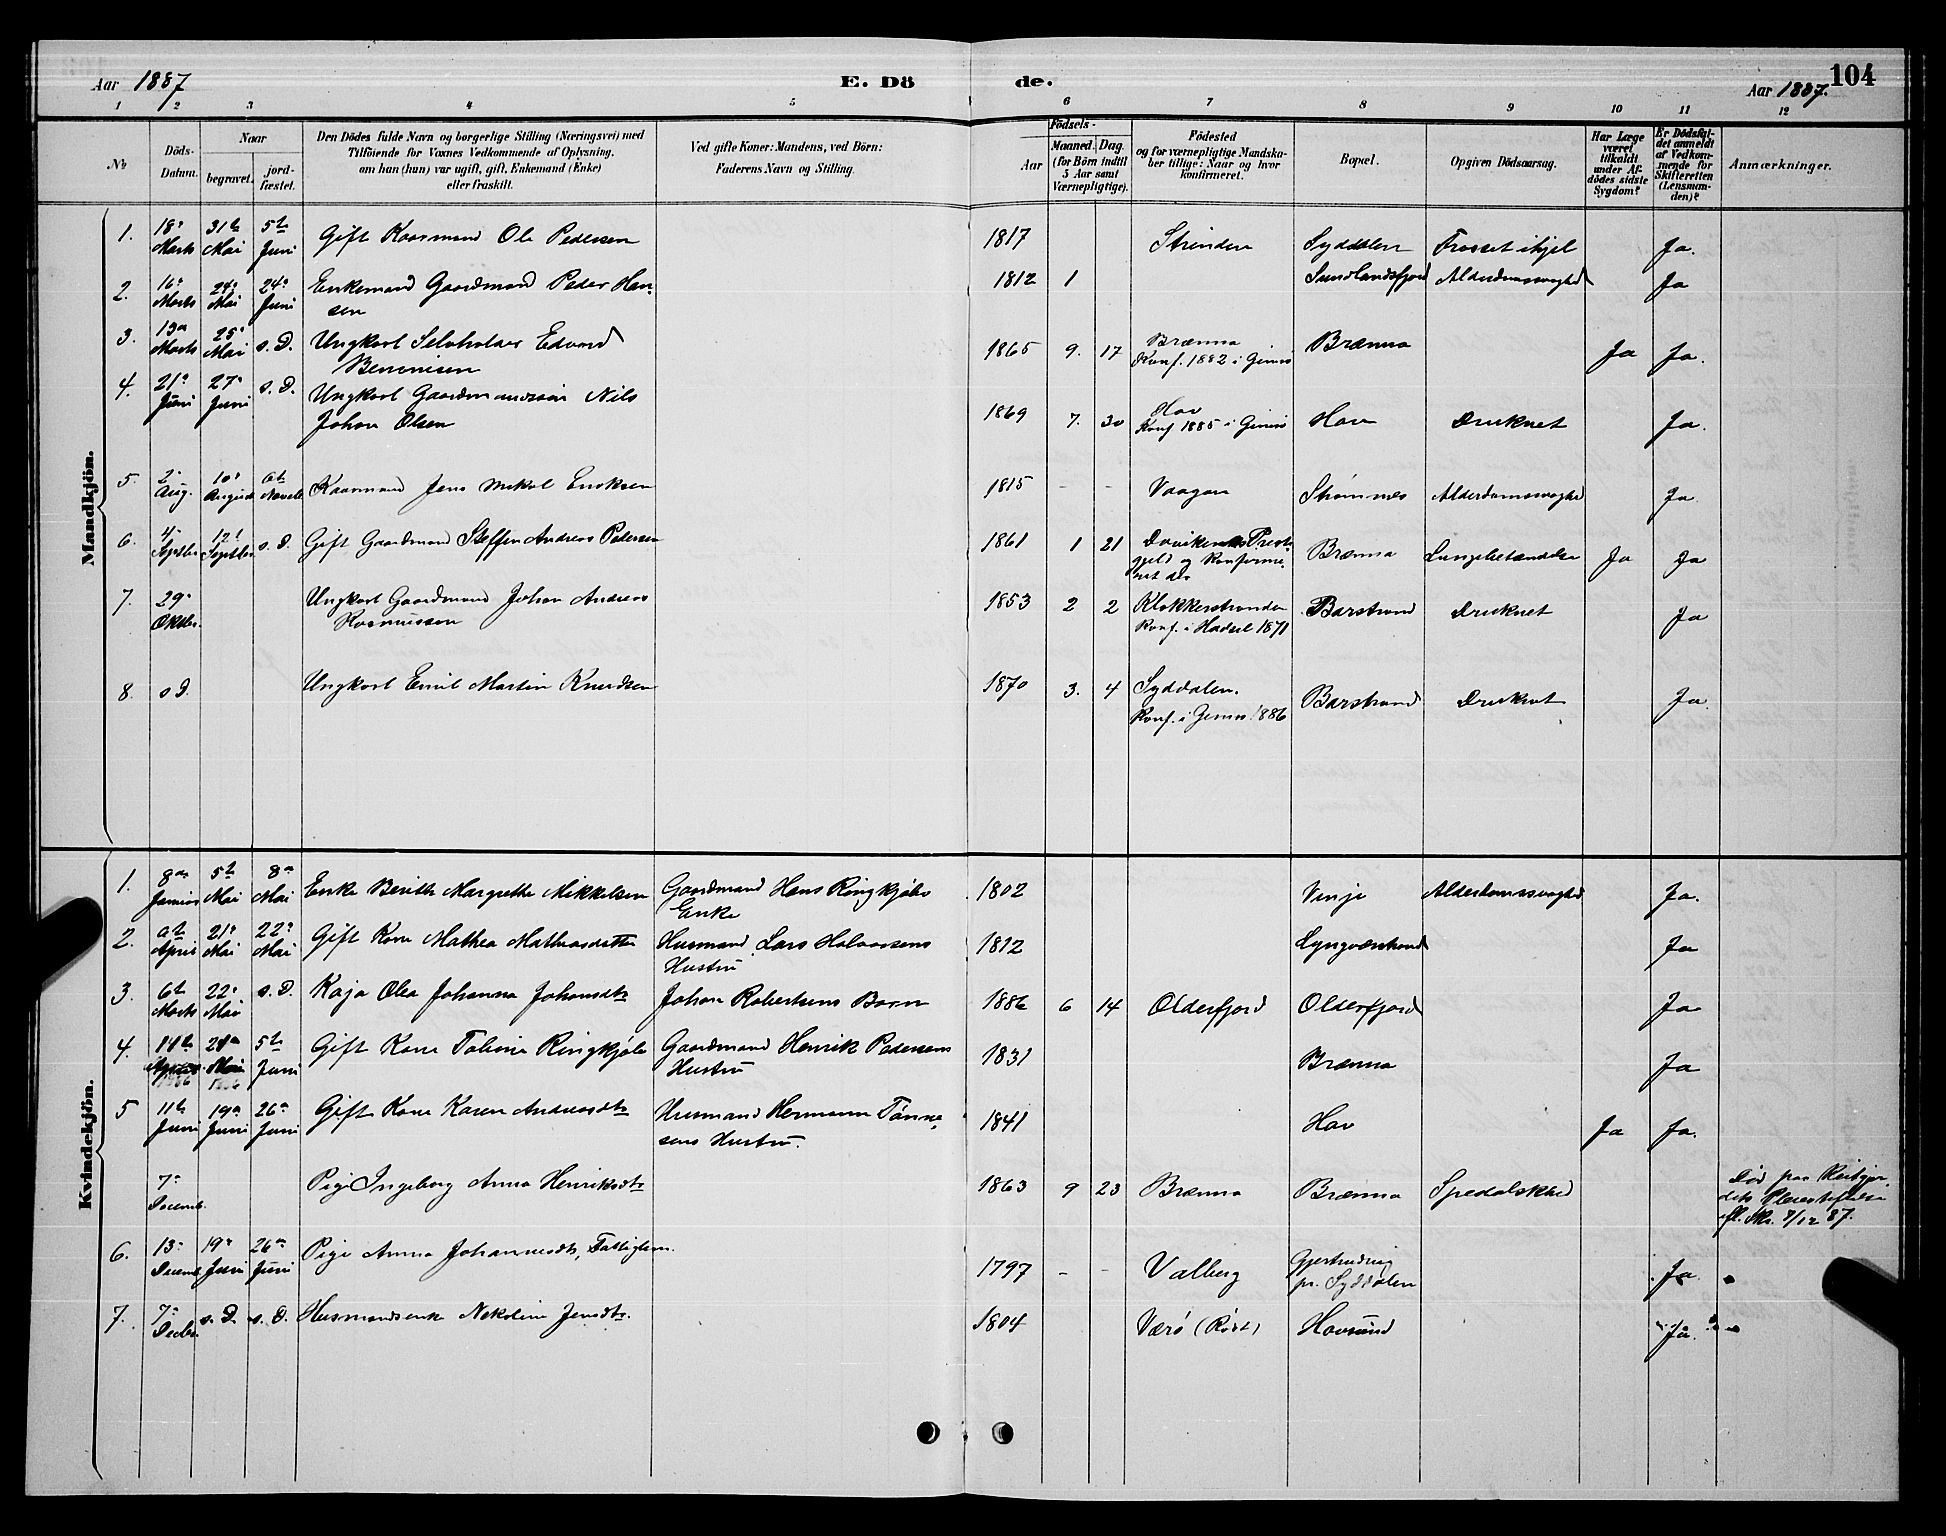 Aar 1887
E. Dö
de.
Aar 1887.
104
1 2 3 4 5 6 7 8 9 10 11 12
No
Döds-
Datum.
Naar
begravet.
jord-
fæstet.
Den Dödes fulde Navn og borgerlige Stilling (Næringsvei) med
Tilföiende for Voxnes Vedkommende af Oplysning,
om han (hun) var ugift, gift, Enkemand (Enke)
eller fraskilt.
Ved gifte Koner: Mandens, ved Börn:
Faderens Navn og Stilling.
Födsels-
Aar
Maaned. Dag.
(for Börn indtil
5 Aar samt
Værnepligtige).
Födested
og for værnepligtige Mandska-
ber tillige: Naar og hvor
konfirmeret.
Bopæl.
Opgiven Dödsaarsag.
Har Læge
været
tilkaldt
under Af-
dödes sidste
Sygdom?
Er Dödsfal-
det anmeldt
af Vedkom-
mende for
Skifteretten
(Lensman-
den)?
Anmærkninger.
Mandkjön.
1. 18de Marts 31te Mai 5te Juni Gift Kaarmand Ole Pedersen 1817 Strinden Syddalen Frosset ihjel Ja.
2. 16de Marts 24de Mai 24de Juni Enkemand Gaardmand Peder Han-
sen 1812 1 Sundlandsfjord Alderdomssvaghed Ja
3. Marts 25de Mai s. D. Ungkarl Selvholder Edvard
Benninsen 1865 9. 17 Brænna
Konf. 1882 i Gimsø Brænna Ja Ja.
4. 21de Juni 27de Juni s. D. Ungkarl Gaardmandssøn Nils
Johan Olsen 1869 7. 30 Hov
Konf 1885 i Gimsø Hov Druknet Ja.
5. 2den Aug. 10de August 6te Novbr Kaarmand Jens Mikal Eriksen 1815 - - Vaagan Strømnes Alderdomssvaghed Ja.
6. 4de Septbr 12te Septbr s. D. Gift Gaardmand Steffen Andreas Pedersen 1861 1 21 Brænna Lungebetændelse Ja Ja
7. 29de Oktbr. Ungkarl Gaardmand Johan Andreas
Rasmussen 1853 2 2 Klokkerstranden
Konf. i Hadsel 1871 Barstrand Druknet Ja
8. s D. Ungkarl Emil Martin Knudsen 1870 3. 4 Syddalen.
Konf. i Gimsø 1886 Barstrand Druknet Ja.
Kvindekjön.
1. 8de Januar 5te Mai 8de Mai Enke Berith Margrethe Mikkelsen Gaardmand Hans Ringkjøbs
Enke 1802 Vinje Alderdomssvaghed Ja.
2. April 21de Mai 22de Mai Gift Kone Mathea Mathiasdatter Husmand Lars Halvorsens
Hustru 1812 Lyngværstrand Ja
3. 6te Marts 22de Mai s. D. Kaja Olea Johanna Johansdtr Johan Robertsens Barn 1886 6 14 Olderfjord Olderfjord Ja
4. 1886 Mai 1886 5te Juni Gift Kone Ringkjøb Gaardmand Henrik Pedersens
Hustru 1831 Brænna Ja
5 11te Juni 19de Juni 26de Juni Gift Kone Karen Andreasdtr Husmand Hermann Tønne-
sens Hustru. 1841 Hov Ja Ja.
7de Decemb. Pige Ingeborg Anna Henriksdtr 1863 9 23 Brænna Brænna Spedalskhed Død paa Reitgjær-
dets Pleiestiftelse
8/12 87.
6. 13de Decemb. 19de Juni 26de Juni Pige Anna Johannesdtr, Fattiglem. 1797 - - Valberg
pr. Syddalen Ja
7. 7de Decbr s. D. s. D. Husmandsenke Nikoline Jensdtr. 1804 Værø (Røst) Hovsund Ja.